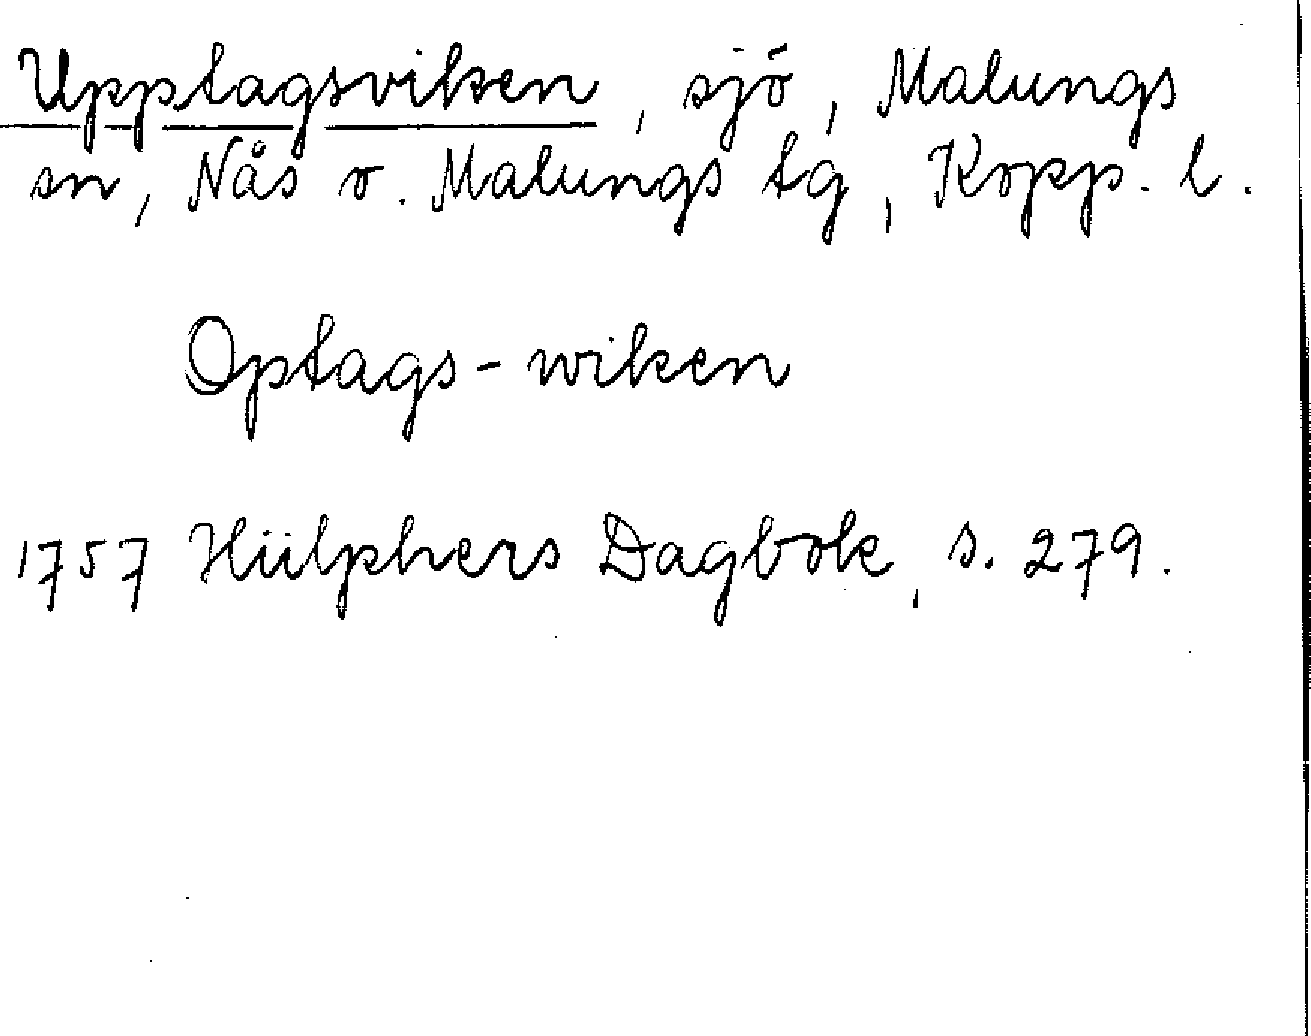 Upptagsviken, sjö, Malungs
sn, Nås o. Malungs tg, Kopp. l.
Optags-wiken
1757 Hülphers Dagbok, s. 279.